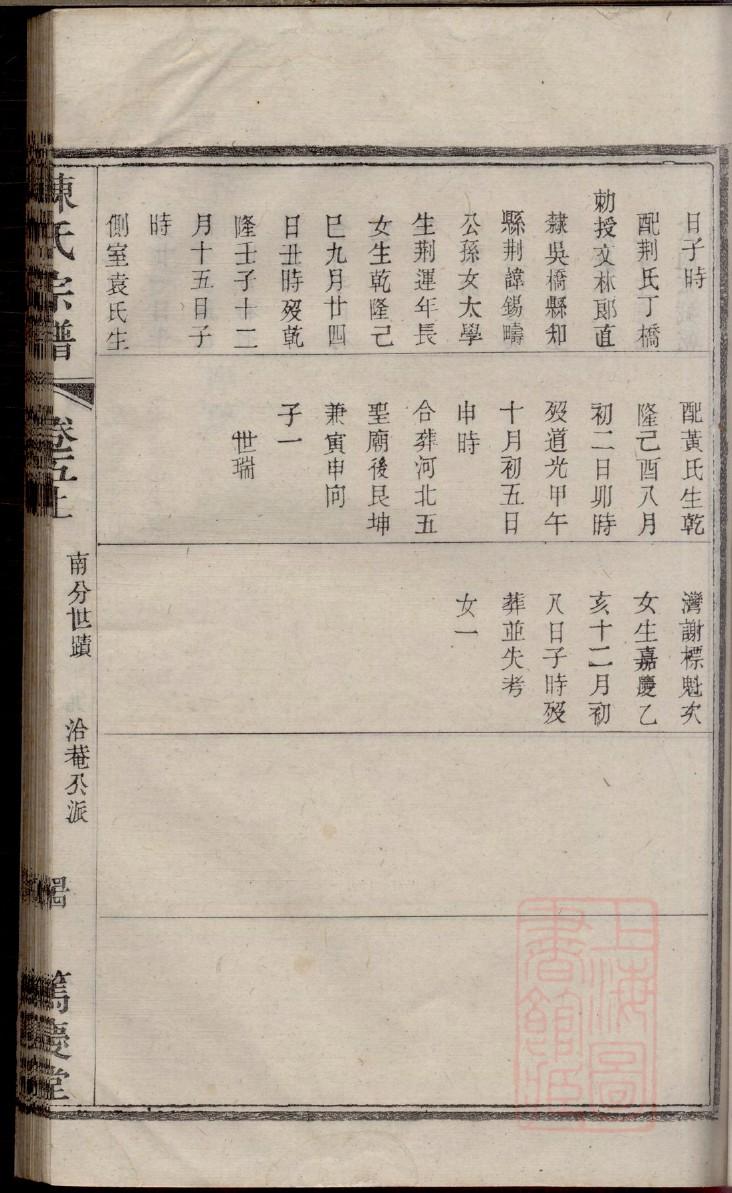 日子時
配荆氏丁橋
勅授文林郎直
隸吳橋縣知
縣荆諱錫疇
公孫女太學
生荆運年長
女生乾隆己
巳九月廿四
日丑時殁乾
隆壬子十二
月十五日子
時
側室袁氏生
配黃氏生乾
隆己酉八月
初二日卯時
殁道光甲午
十月初五日
申時
合葬河北五
聖廟後艮坤
兼寅申向
子一
世瑞
灣謝標魁次
女生嘉慶乙
亥十二月初
八日子時殁
葬並失考
女一
陳氏宗譜
卷五上
南分世蹟
洽菴公派
篤慶堂
上海圖
書館藏